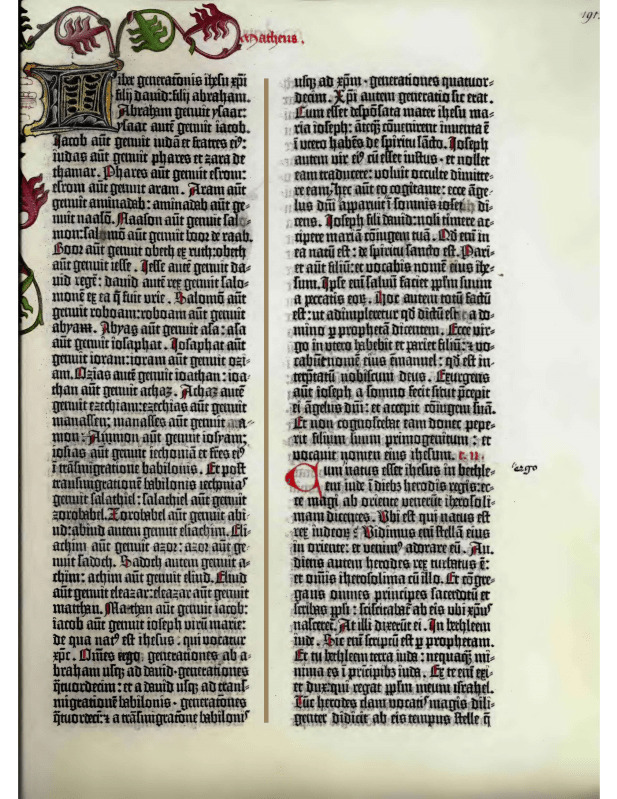 Matheus.
191.
Liber generationis ihesu xpi
filij david: filij abraham.
Abraham genuit ysaac:
ysaac autē genuit iacob.
Iacob aūt genuit iudā et fratres eiꝰ:
iudas aūt genuit phares et zara de
thamar. Phares aūt genuit esrom:
esrom aūt genuit aram. Aram aūt
genuit aminadab: aminadab aūt ge-
nuit naasō. Naason aūt genuit sal-
mon: salmō aūt genuit booz de raab.
Booz aūt genuit obeth ex ruth: obeth
aūt genuit iesse. Iesse autē genuit da-
uid regē: dauid autē rex genuit salo-
monē ex ea q̄ fuit vrie. Salomō aūt
genuit roboam: roboam aūt genuit
abyam. Abyas aūt genuit asa: asa
aūt genuit iosaphat. Iosaphat aūt
genuit ioram: ioram aūt genuit ozi-
am. Ozias autē genuit ioathan: ioa-
than aūt genuit achaz. Achaz autē
genuit ezechiam: ezechias aūt genuit
manassen: manasses aūt genuit a-
mon: Ammon aūt genuit iosyam:
iosyas aūt genuit iechoniā et fr̄es eiꝰ
ī trāsmigratione babilonis. Et post
transmigrationē babilonis iechonias
genuit salathiel: salathiel aūt genuit
zorobabel. Zorobabel aūt genuit abi-
ud: abiud autem genuit eliachim. Eli-
achim aūt genuit azor: azor aūt ge-
nuit sadoch. Sadoch autem genuit a-
chim: achim aūt genuit eliud. Eliud
aūt genuit eleazar: eleazar aūt genuit
matthan. Matthan aūt genuit iacob:
iacob aūt genuit ioseph virū marie:
de qua natꝰ est ihesus: qui vocatur
xpc. Om̄es ergo generationes ab a-
braham usq; ad dauid · generationes
q̄tuordecim: et a dauid usq; ad trans-
migrationē babilonis · generationes
q̄tuordeci: ⁊ a trāsmigratōne babilonis
usq; ad xpm̄ · generationes quatuor-
decim. Xpi autem generatio sic erat.
Cum esset despōsata mater ihesu ma-
ria ioseph: anteq̄ conuenirent inuenta ē
ī utero habēs de spiritu sācto. Ioseph
autem vir eiꝰ cū esset iustus · et nollet
eam traducere: voluit occulte dimitte-
re eam. Hec aūt eo cogitante: ecce āge-
lus dn̄i apparuit ī somnis ioseph di-
cens. Ioseph fili dauid: noli timere ac-
cipere mariā cōiugem tuā. Qd̄ em̄ in
ea natū est: de spiritu sancto est. Pari-
et aūt filiū: et vocabis nomē eius ihe-
sum. Ipse em̄ saluū faciet pp̄lm suum
a peccatis eoꝝ. Hoc autem totū factū
est: ut adimpleretur qd̄ dictū est a do-
mino ꝑ prophetā dicentem. Ecce vir-
go in utero habebit et pariet filiū: ⁊ vo-
cabūt nomē eius emanuel: qd̄ est in-
terp̄tatū nobiscum deus. Exurgens
aūt ioseph a somno fecit sicut p̄cepit
ei āgelus dn̄i: et accepit cōiugem suā.
Et non cognoscebat eam donec pepe-
rit filium suum primogenitum: et
vocauit nomen eius ihesum. c. II.
Cum natus esset ihesus in bethle-
ergo
em iude ī diebꝫ herodis regis: ec-
ce magi ab oriente venerūt iherosoli-
mam dicentes. Vbi est qui natus est
rex iudeoꝝ: Vidimus em̄ stellā eius
in oriente: et venimꝰ adorare eū. Au-
diens autem herodes rex turbatus ē:
et omīs iherosolima cū illo. Et cōgre-
gans omnes principes sacerdotū et
scribas pp̄li: sciscitabat̄ ab eis ubi xp̄us
nasceret̄. At illi dixerūt ei. In bethleem
iude. Sic em̄ scriptū est ꝑ prophetam.
Et tu bethleem terra iuda: nequaq̄ mi-
nima es ī principibꝫ iuda. Ex te em̄ exi-
et dux: qui regat pp̄lm meum israhel.
Tūc herodes clam vocatis magis dili-
genter didicit ab eis tempus stelle q̄